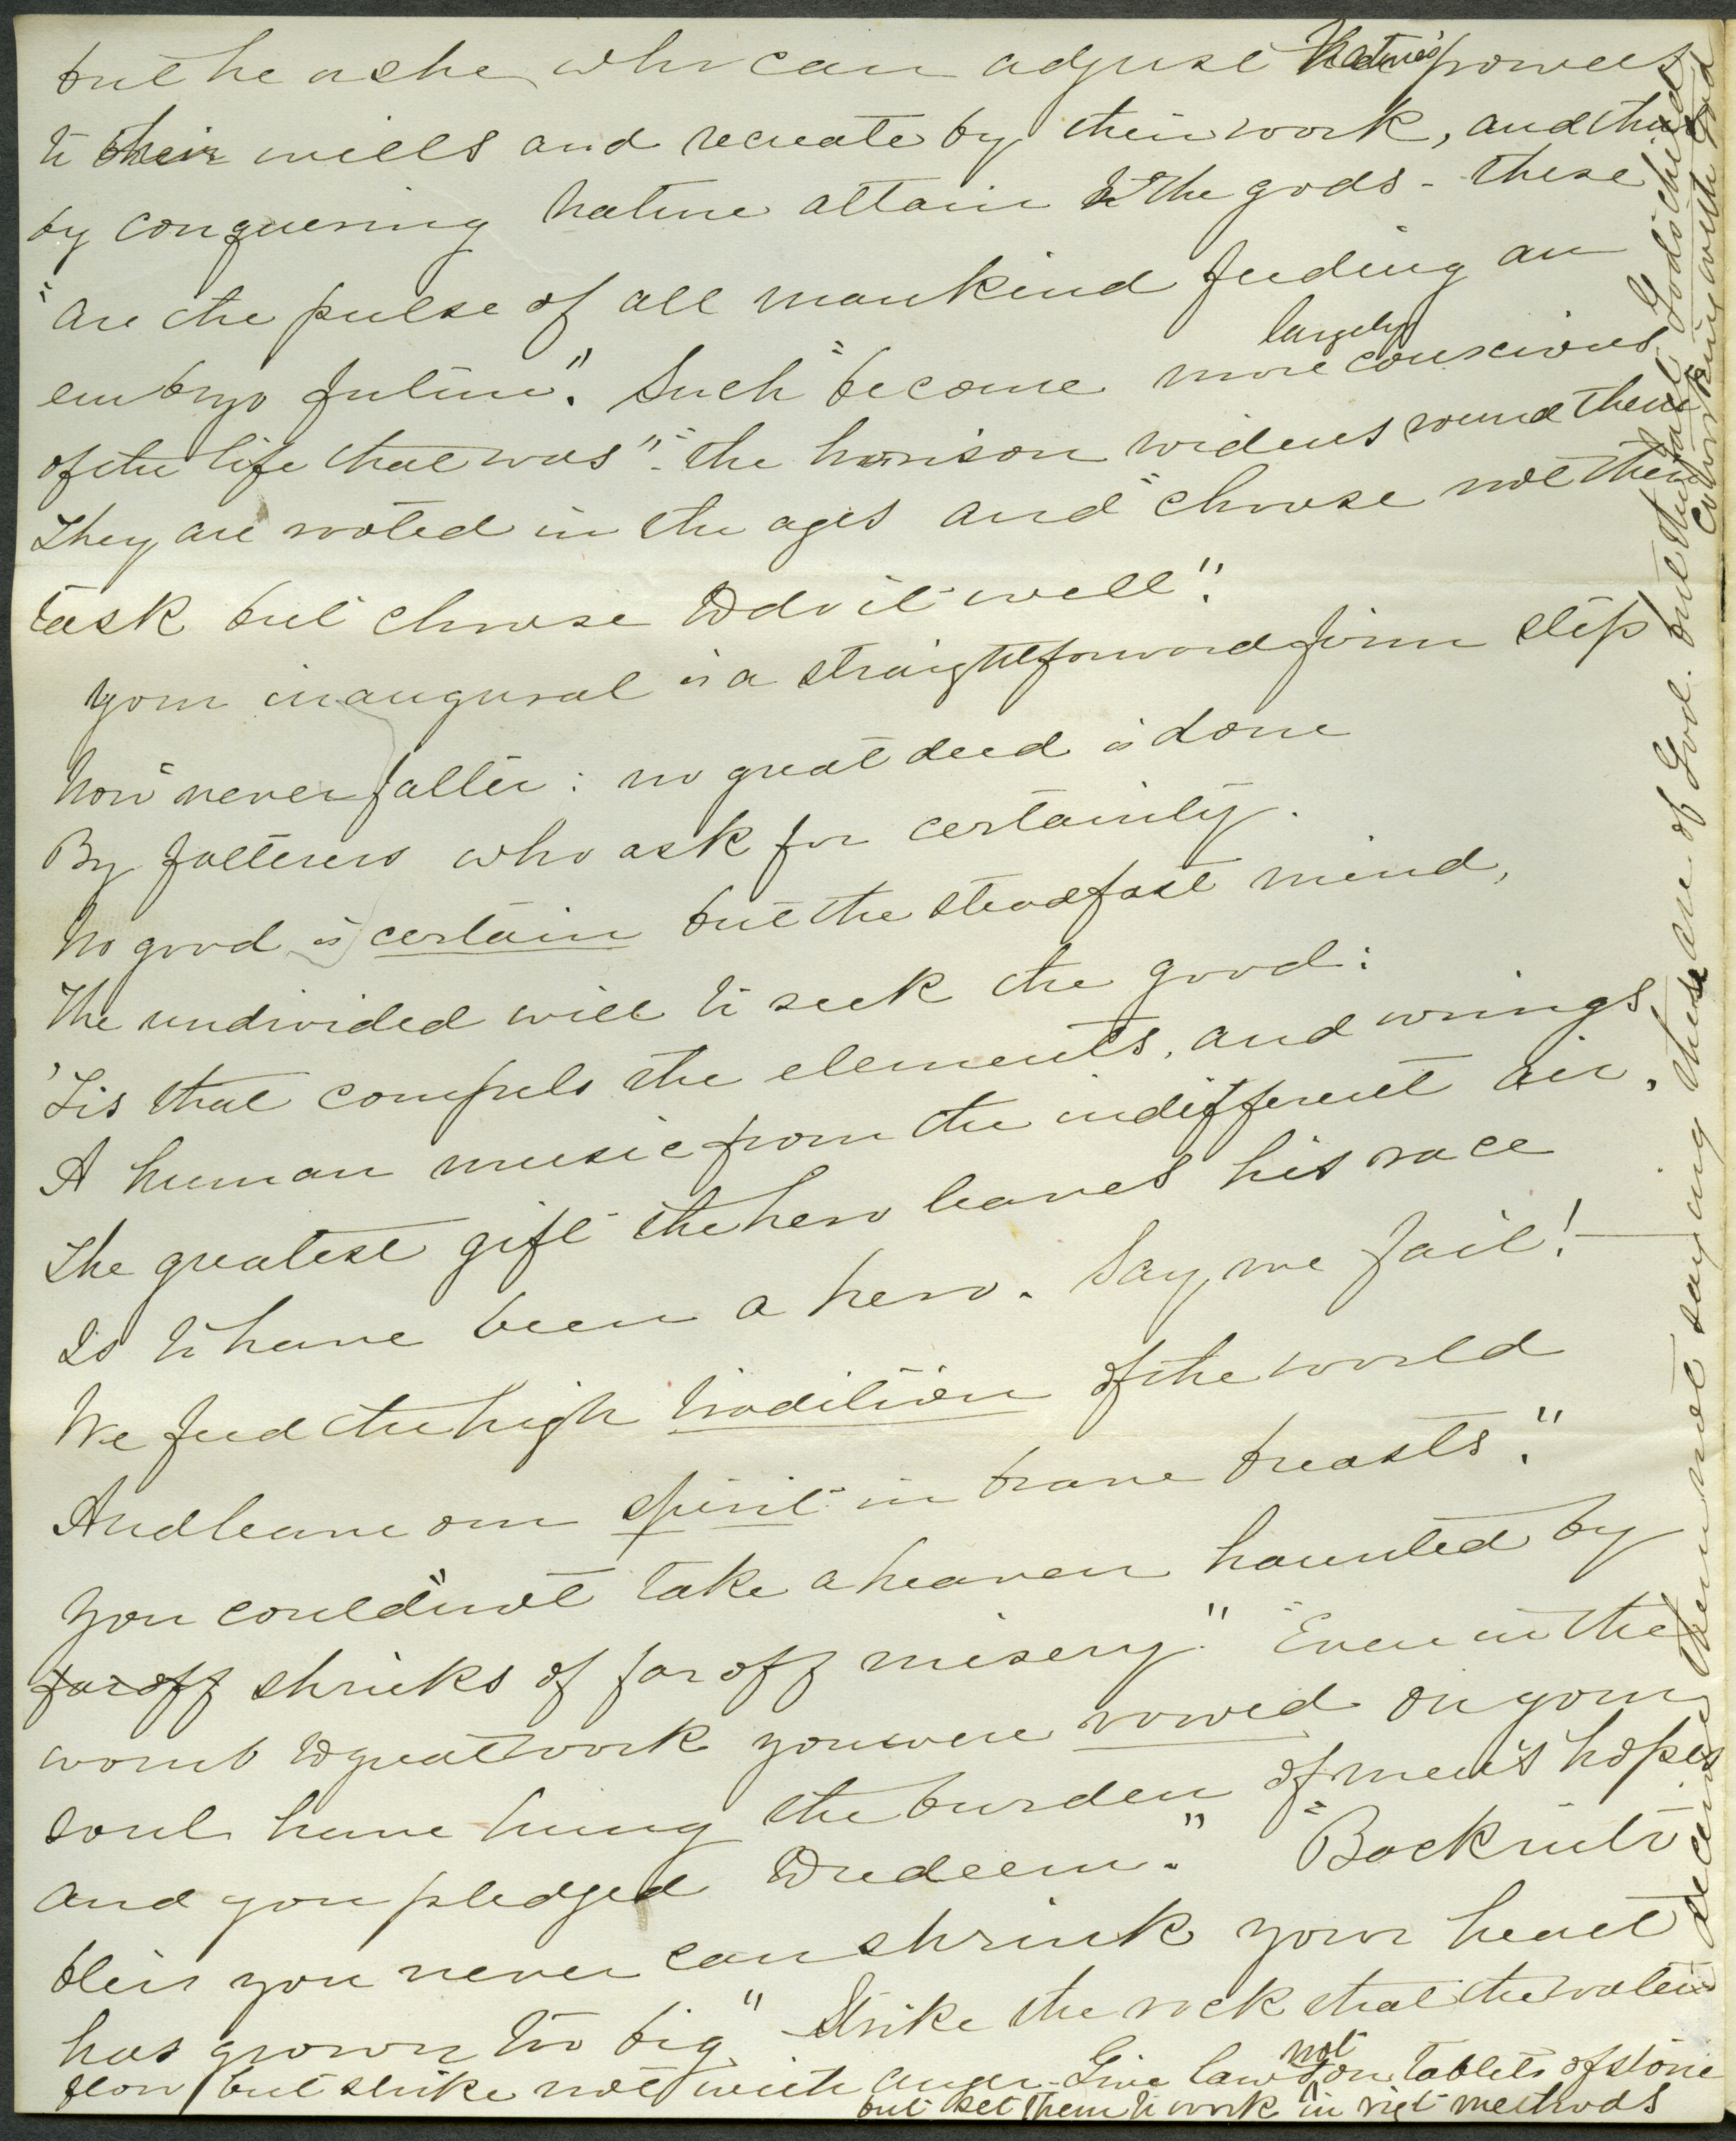 but he or she who can adjust Nature's powers
to their wills and recreate by their work, and thus
by conquering Nature attain to the gods - these
"are the pulse of all mankind feeding an
embryo future." Such "become more largely conscious
of the life that was" - the horison widens round them
They are rooted in the ages and "choose not their
task but choose to do it well".
Your inaugural is a straightforward firm step
Now "never falter: no great deed is done
By falterers who ask for certainty.
No good is certain but the steadfast mind,
The undivided will to seek the good:
'Tis that compels the elements, and wrings
A human music from the indifferent air.
The greatest gift the hero leaves his race
Is to have been a hero. Say, we fail! -
We feed the high tradition of the world
And leave our spirit in brave breasts."
You could "not take a heaven haunted by
far off shrieks of far off misery." "Even in the
womb to great work you were vowed on your
soul have hung the burden of men's hopes
and you pledged to redeem." "Back into
bliss you never can shrink your heart
has grown too big" Strike the rock that the waters
flow, but strike not with anger. Give laws not on tablets of stone
but set them to work in rigt methods
deceive them not saying these are of God. but they are God's children
coworking with God